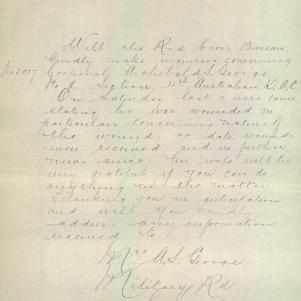 Will the Red Cross Bureau
kindly make inquiries concerning
No 2087 Corporal Archibald S. George
No 2 Section, 4th Australian D.A.C
On Saturday last a wire came
stating he was wounded no
particulars concerning nature of
the wound or date wounds
were received, and no further
news since, his wife will be
very grateful if you can do
anything in the matter
Thanking you in anticipation
and will you kindly
address any information
received to
Mrs A.S. George
Military Rd